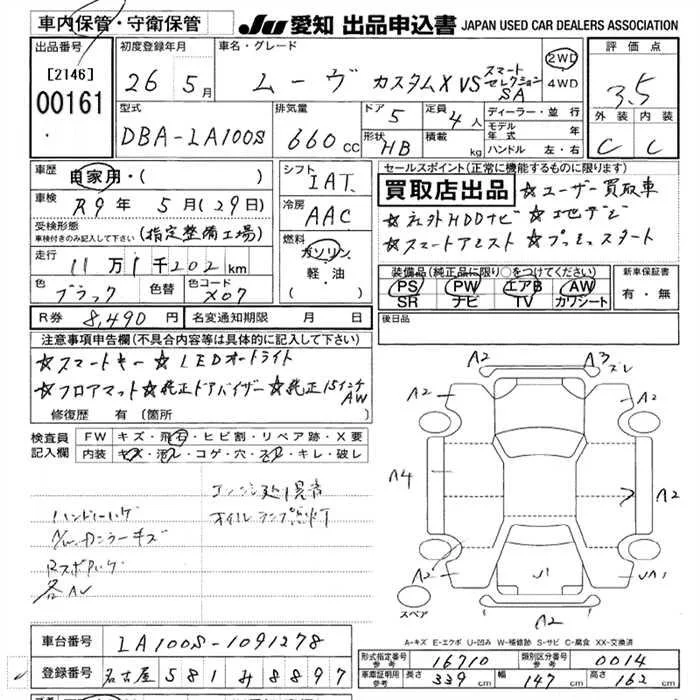 車内保管・守衛保管
JU 愛知 出品申込書 JAPAN USED CAR DEALERS ASSOCIATION
出品番号
[2146]
00161
初度登録年月
26 5月
車名・グレード
ムーヴ カスタムX VS スマートセレクションSA
2WD
4WD
評価点
3.5
外装 内装
C C
型式
DBA-LA100S
排気量
660cc
ドア
5
形状
HB
定員
4人
積載
kg
ディーラー・並行
モデル年式 年
ハンドル 左・右
車歴
自家用・( )
車検
R9年 5月(29日)
受検形態
車検付きのみ記入して下さい
(指定整備工場)
走行
11万1千202km
色
ブラック
色替
色コード
X07
シフト
IAT
冷房
AAC
燃料
ガソリン
軽・油
( )
セールスポイント(正常に機能するものに限ります)
買取店出品 ☆ユーザー買取車
☆社外HDDナビ ☆地デジ
☆スマートアシスト ☆プッシュスタート
装備品(純正品に限り○をつけてください)
PS PW エアB AW
SR ナビ TV カワシート
新車保証書
有・無
R券 8,490円
名変通知期限 月 日
後日品
注意事項申告欄(不具合内容等は具体的に記入して下さい)
☆スマートキー ☆LEDオートライト
☆フロアマット ☆純正ドアバイザー ☆純正15インチAW
修復歴 有(箇所 )
検査員記入欄
FW キズ・飛石・ヒビ割・リペア跡・X要
内装 キズ・汚レ・コゲ・穴・スレ・キレ・破レ
ハンドルハゲ
オイルランプ点灯
各AU
A2 A3 スレ
A2 A2
A4 A2
A2 U1 UA1
A2
スペア
A-キズ E-エクボ U-凹み W-補修跡 S-サビ C-腐食 XX-交換済
車台番号 LA100S-1091278
登録番号 名古屋 581 み 8897
形式指定番号 参考 16710
類別区分番号 参考 0014
車庫証明用 参考 長さ 339cm 幅 147cm 高さ 162cm